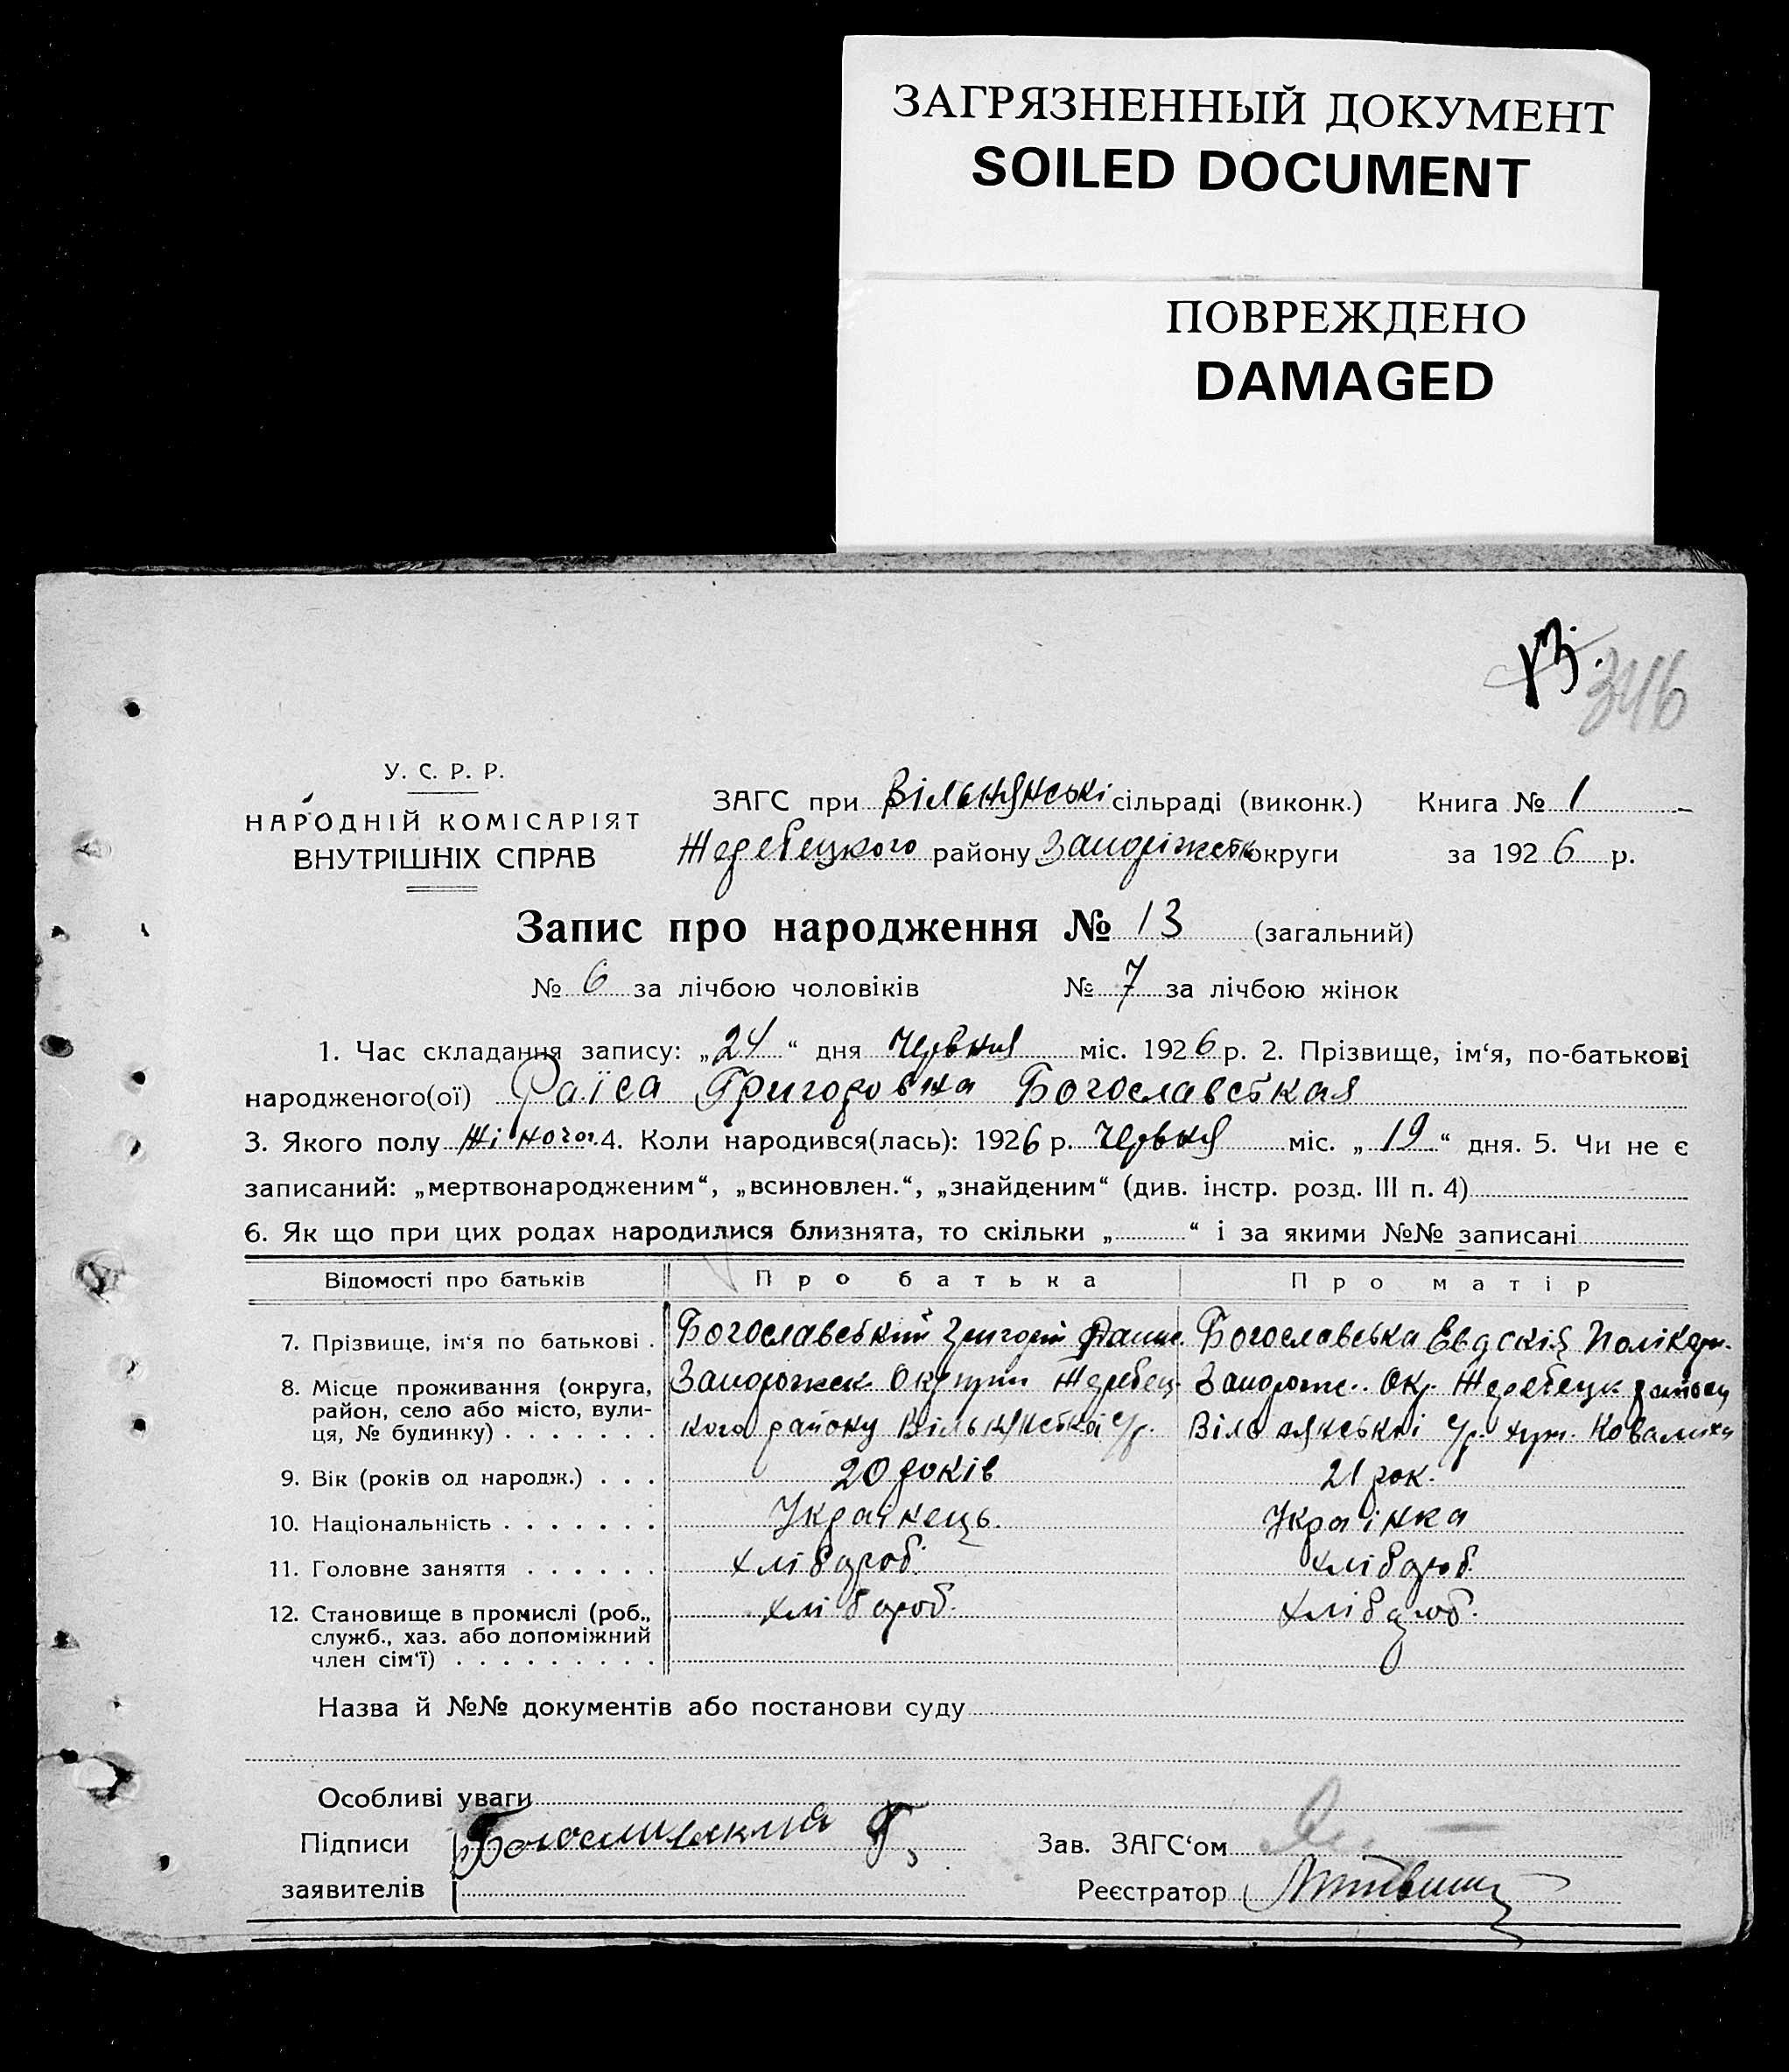 ЗАГРЯЗНЕННЫЙ ДОКУМЕНТ
SOILED DOCUMENT
ПОВРЕЖДЕНО
DAMAGED
346
У. С. Р. Р.
НАРОДНІЙ КОМІСАРІЯТ
ВНУТРІШНІХ СПРАВ
ЗАГС при Вільнянські сільраді (виконк.) Книга № 1
Жеребецкого району Запоріжськ округи за 1926 р.
Запис про народження № 13 (загальний)
№ 6 за лічбою чоловіків № 7 за лічбою жінок
1. Час складання запису: „24“ дня Червня міс. 1926 р. 2. Прізвище, ім‘я, по-батькові
народженого(ої) Раїса Григоровна Богославськая
3. Якого полу Жіночог. 4. Коли народився(лась): 1926 р. Червня міс. „19“ дня. 5. Чи не є
записаний: „мертвонародженим“, „всиновлен.“, „знайденим“ (див. інстр. розд. III п. 4)
6. Як що при цих родах народилися близнята, то скільки „ “ і за якими №№ записані
Відомості про батьків Про батька Про матір
7. Прізвище, ім‘я по батькові . Богославський Григорій Богославська Евдокія Полікар.
8. Місце проживання (округа, район, село або місто, вулиця, № будинку) Запорожск. Округи Жеребец Запорож. Окр. Жеребецк району
кого району Вільнянської с/р. Вільнянські с/р. хут. Ковалиха
9. Вік (років од народж.) . . . 20 років 21 рок.
10. Національність . . . . . . . Українець. Українка
11. Головне заняття . . . . . . хлібороб. хлібороб.
12. Становище в промислі (роб., служб., хаз. або допоміжний член сім‘ї) хлібороб. хлібороб.
Назва й №№ документів або постанови суду
Особливі уваги
Підписи Г. Зав. ЗАГС‘ом
заявителів Реєстратор